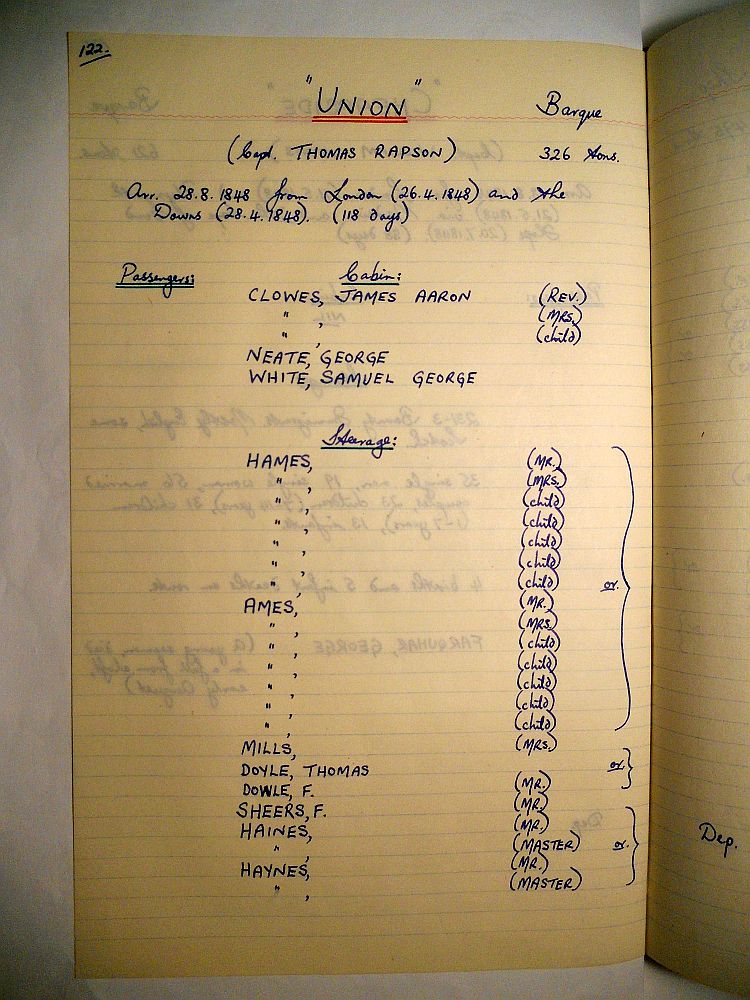 122.
"UNION" Barque
(Capt. THOMAS RAPSON) 326 tons.
Arr. 28.8.1848 from London (26.4.1848) and the
Downs (28.4.1848). (118 days)
Passengers: Cabin:
CLOWES, JAMES AARON (REV.)
" , (MRS.)
" , (child)
NEATE, GEORGE
WHITE, SAMUEL GEORGE
Steerage:
HAMES, (MR.)
" , (MRS.)
" , (child)
" , (child)
" , (child)
" , (child)
" , (child) or.
AMES, (MR.)
" , (MRS.)
" , (child)
" , (child)
" , (child)
" , (child)
" , (child)
MILLS, (MRS.)
DOYLE, THOMAS or.
DOWLE, F. (MR.)
SHEERS, F. (MR.)
HAINES, (MR.)
" , (MASTER) or.
HAYNES, (MR.)
" , (MASTER)
Dep.